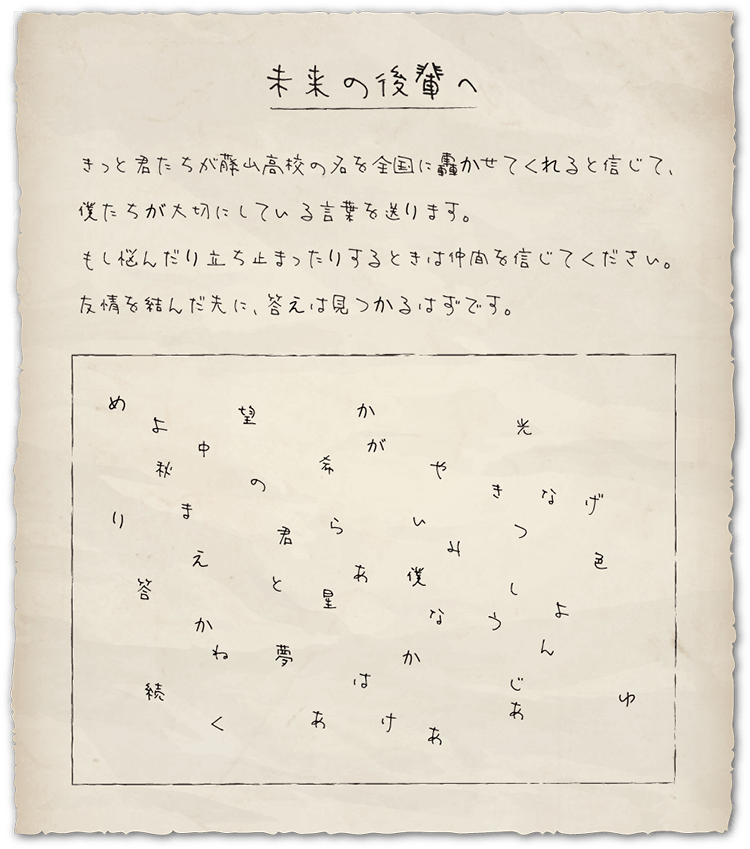 未来の後輩へ
きっと君たちが藤山高校の名を全国に轟かせてくれると信じて、
僕たちが大切にしている言葉を送ります。
もし悩んだり立ち止まったりするときは仲間を信じてください。
友情を結んだ先に、答えは見つかるはずです。
め よ 望 か 光
中 が
秋 の 希 や き な げ
り ま 君 ら い つ
え み 色
答 と 星 あ 僕 し
か な う よ
ね 夢 か ん
続 は じ ゆ
く あ け あ あ